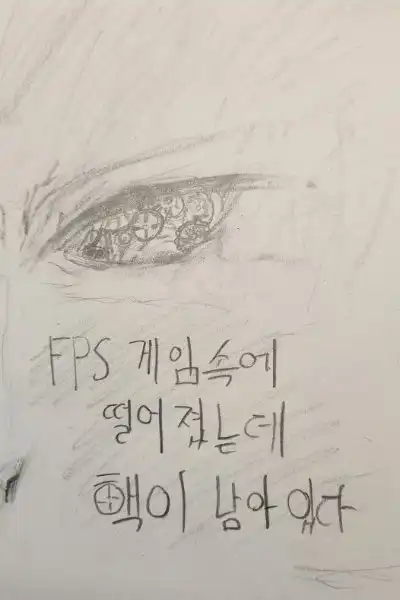 FPS 게임속에
떨어졌는데
핵이 남아있다